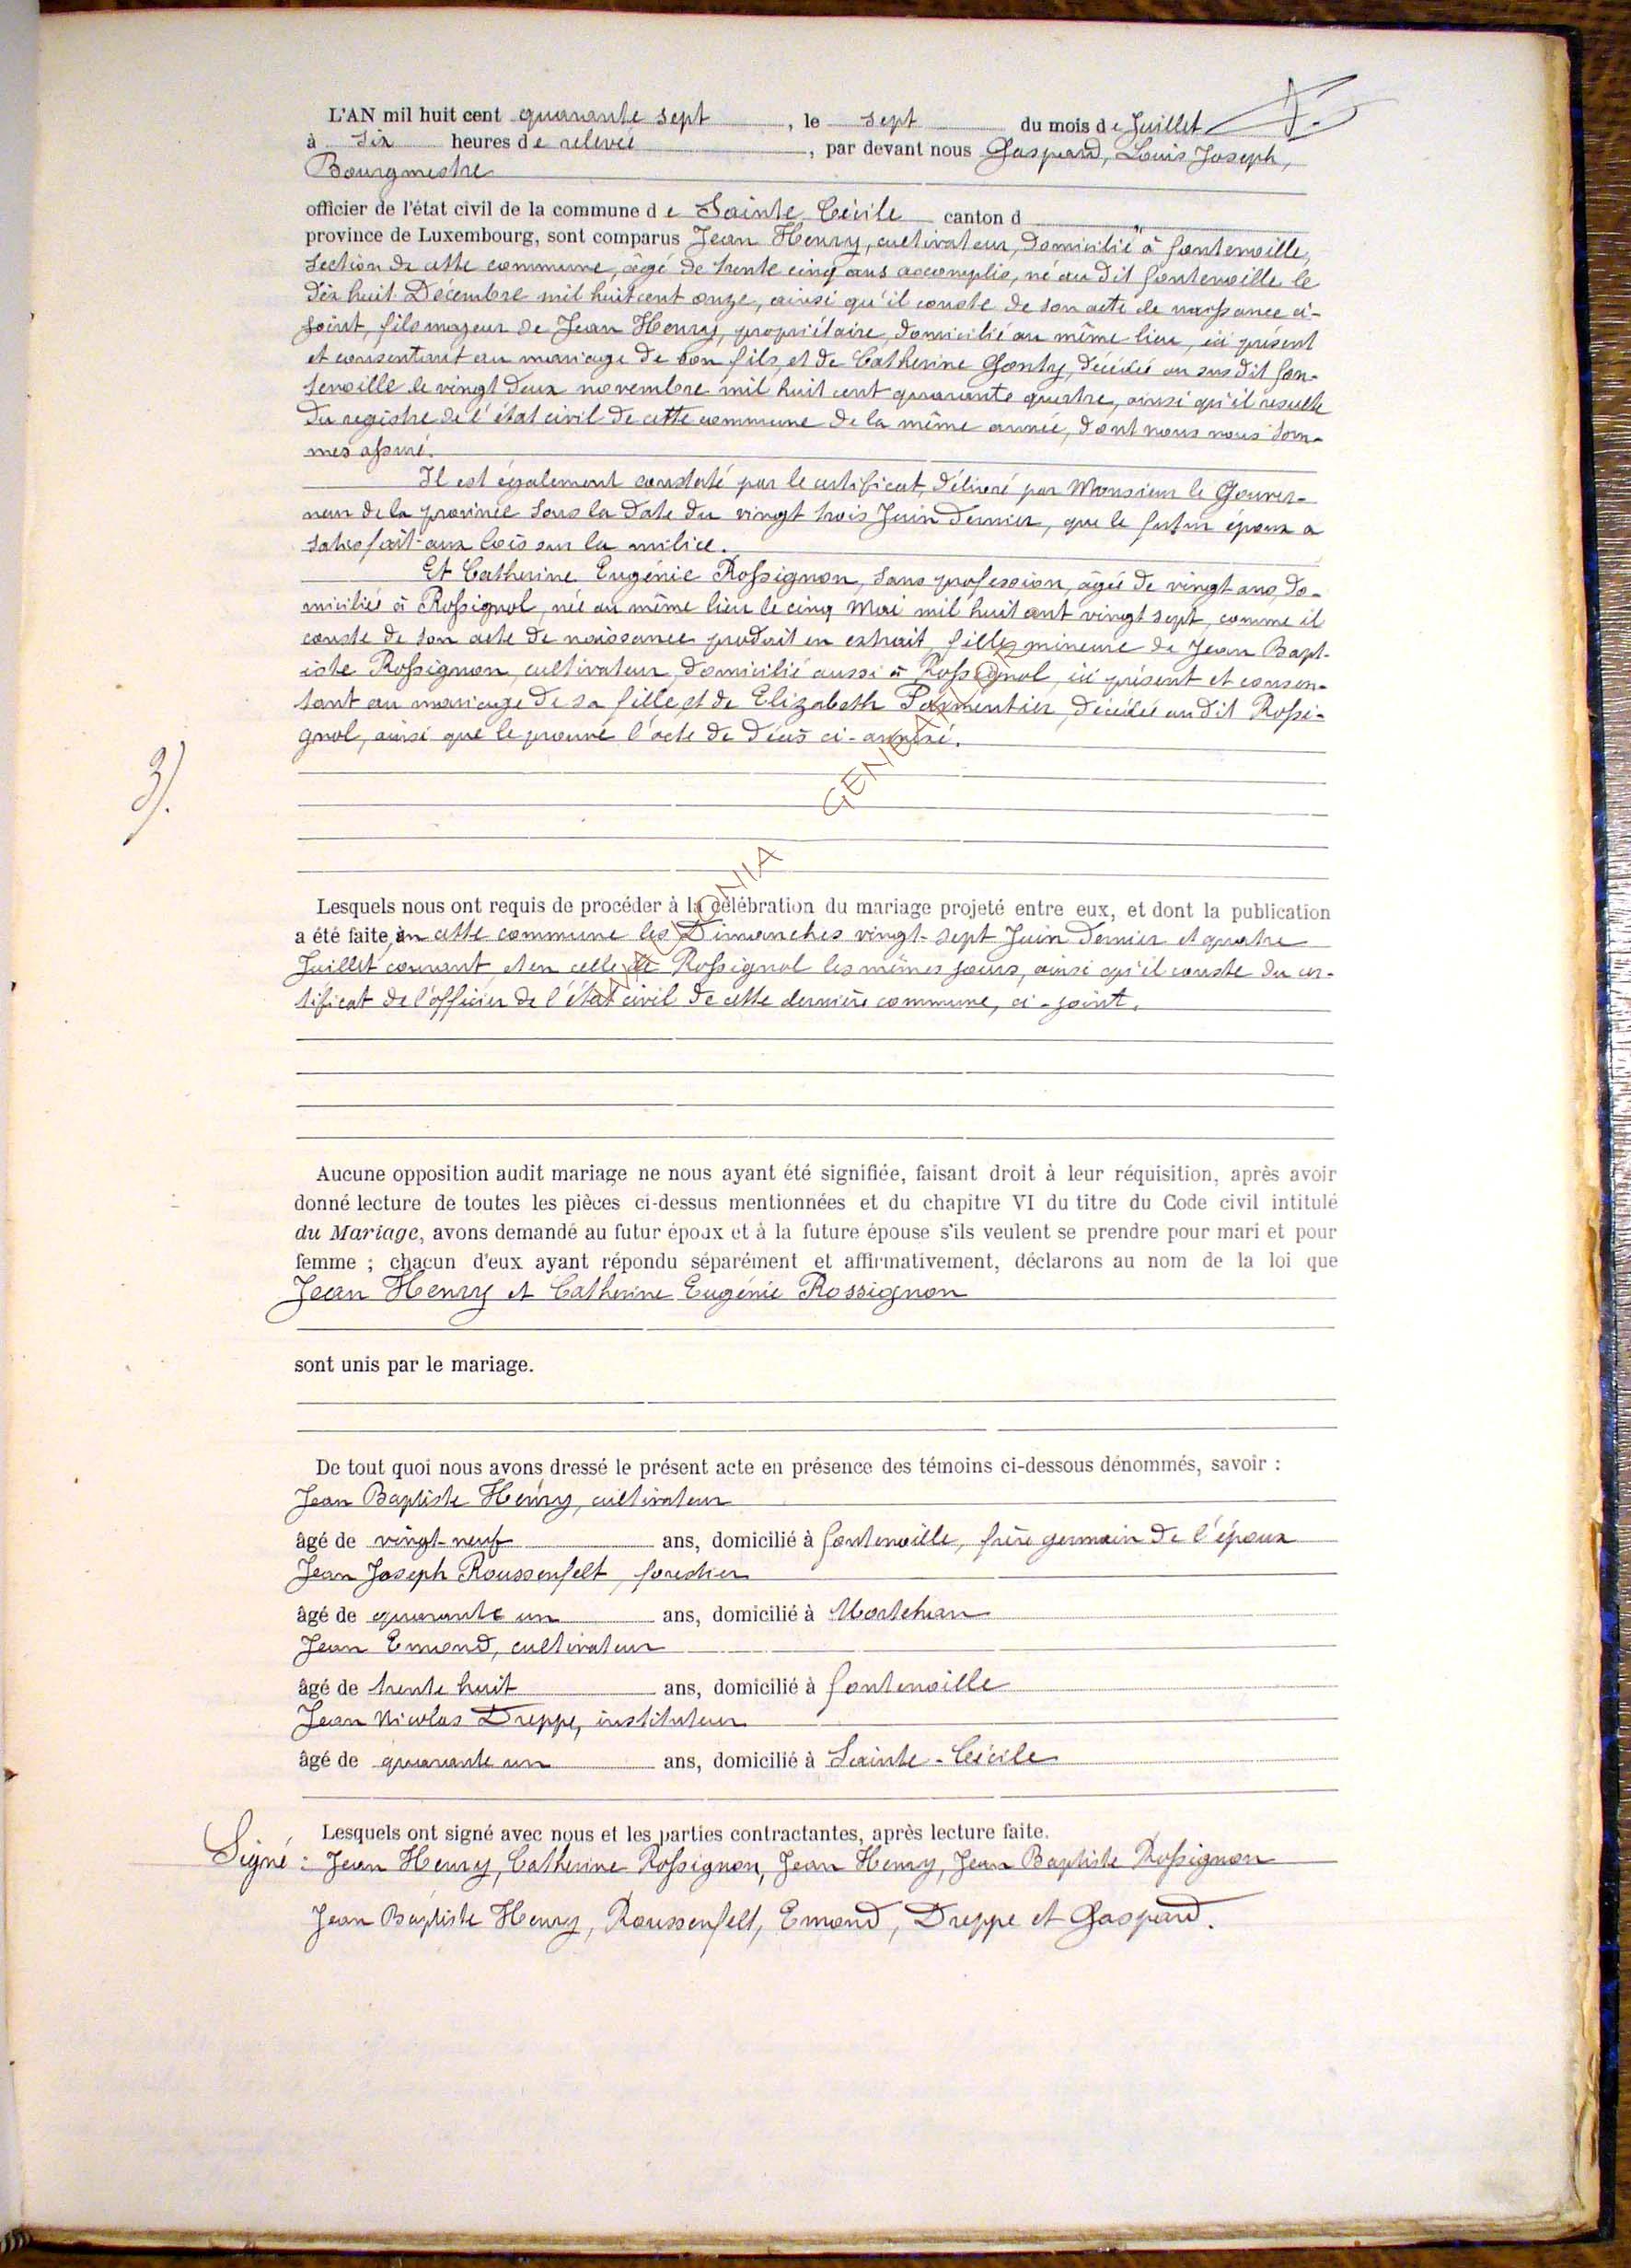 L'AN mil huit cent quarante sept, le sept du mois de Juillet
à six heures de relevée, par devant nous Gaspard, Louis Joseph,
Bourgmestre
officier de l'état civil de la commune de Sainte Cécile canton d "
province de Luxembourg, sont comparus Jean Henry, cultivateur, domicilié à fontenoille,
section de cette commune, âgé de trente cinq ans accomplis, né au dit fontenoille le
dix huit Décembre mil huit cent onze, ainsi qu'il conste de son acte de naissance ci-
joint, fils majeur de Jean Henry, propriétaire, domicilié au même lieu, ici présent
et consentant au mariage de son fils, et de Catherine Gonty, décédée au sus dit fon-
tenoille le vingt deux novembre mil huit cent quarante quatre, ainsi qu'il résulte
du registre de l'état civil de cette commune de la même année, dont nous nous som-
mes assuré.
Il est également constaté par le certificat, délivré par Monsieur le Gouver-
neur de la province sous la date du vingt trois Juin dernier, que le futur époux a
satisfait aux lois sur la milice.
Et Catherine Eugénie Rossignon, sans profession, âgée de vingt ans, do-
miciliée à Rossignol, née au même lieu le cinq Mai mil huit cent vingt sept, comme il
conste de son acte de naissance produit en extrait, fille mineure de Jean Bapt-
iste Rossignon, cultivateur, domicilié aussi à Rossignol, ici présent et consen-
tant au mariage de sa fille, et de Elizabeth Parmentier, décédée au dit Rossi-
gnol, ainsi que le prouve l'acte de décès ci-annexé.
3).
Lesquels nous ont requis de procéder à la célébration du mariage projeté entre eux, et dont la publication
a été faite, en cette commune les Dimanches vingt-sept Juin dernier et quatre
Juillet courant, et en celle de Rossignol les mêmes jours, ainsi qu'il conste du cer-
tificat de l'officier de l'état civil de cette dernière commune, ci-joint.
Aucune opposition audit mariage ne nous ayant été signifiée, faisant droit à leur réquisition, après avoir
donné lecture de toutes les pièces ci-dessus mentionnées et du chapitre VI du titre du Code civil intitulé
du Mariage, avons demandé au futur époux et à la future épouse s'ils veulent se prendre pour mari et pour
femme ; chacun d'eux ayant répondu séparément et affirmativement, déclarons au nom de la loi que
Jean Henry et Catherine Eugénie Rossignon
sont unis par le mariage.
De tout quoi nous avons dressé le présent acte en présence des témoins ci-dessous dénommés, savoir :
Jean Baptiste Henry, cultivateur
âgé de vingt-neuf ans, domicilié à fontenoille, frère germain de l'époux
Jean Joseph Roussenfelt, forestier
âgé de quarante un ans, domicilié à Mortehan
Jean Emond, cultivateur
âgé de trente huit ans, domicilié à fontenoille
Jean Nicolas Dreppe, instituteur
âgé de quarante un ans, domicilié à Sainte-Cécile
Lesquels ont signé avec nous et les parties contractantes, après lecture faite.
Signé : Jean Henry, Catherine Rossignon, Jean Henry, Jean Baptiste Rossignon
Jean Baptiste Henry, Roussenfelt, Emond, Dreppe et Gaspard.